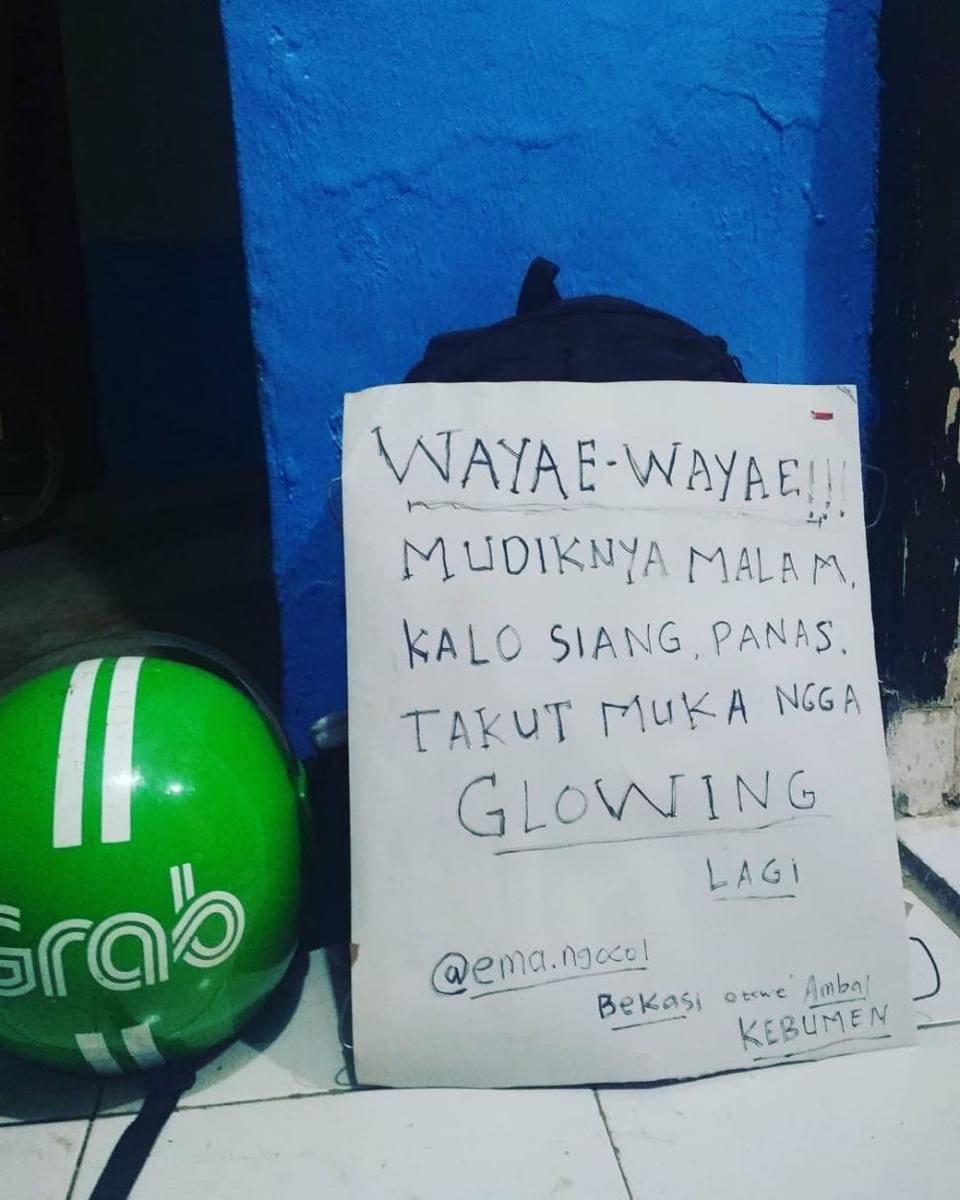 WAYAE-WAYAE!!!
MUDIKNYA MALAM,
KALO SIANG, PANAS.
TAKUT MUKA NGGA
GLOWING
LAGI
@ema.ngocol
Bekasi otewe Ambal
KEBUMEN
Grab